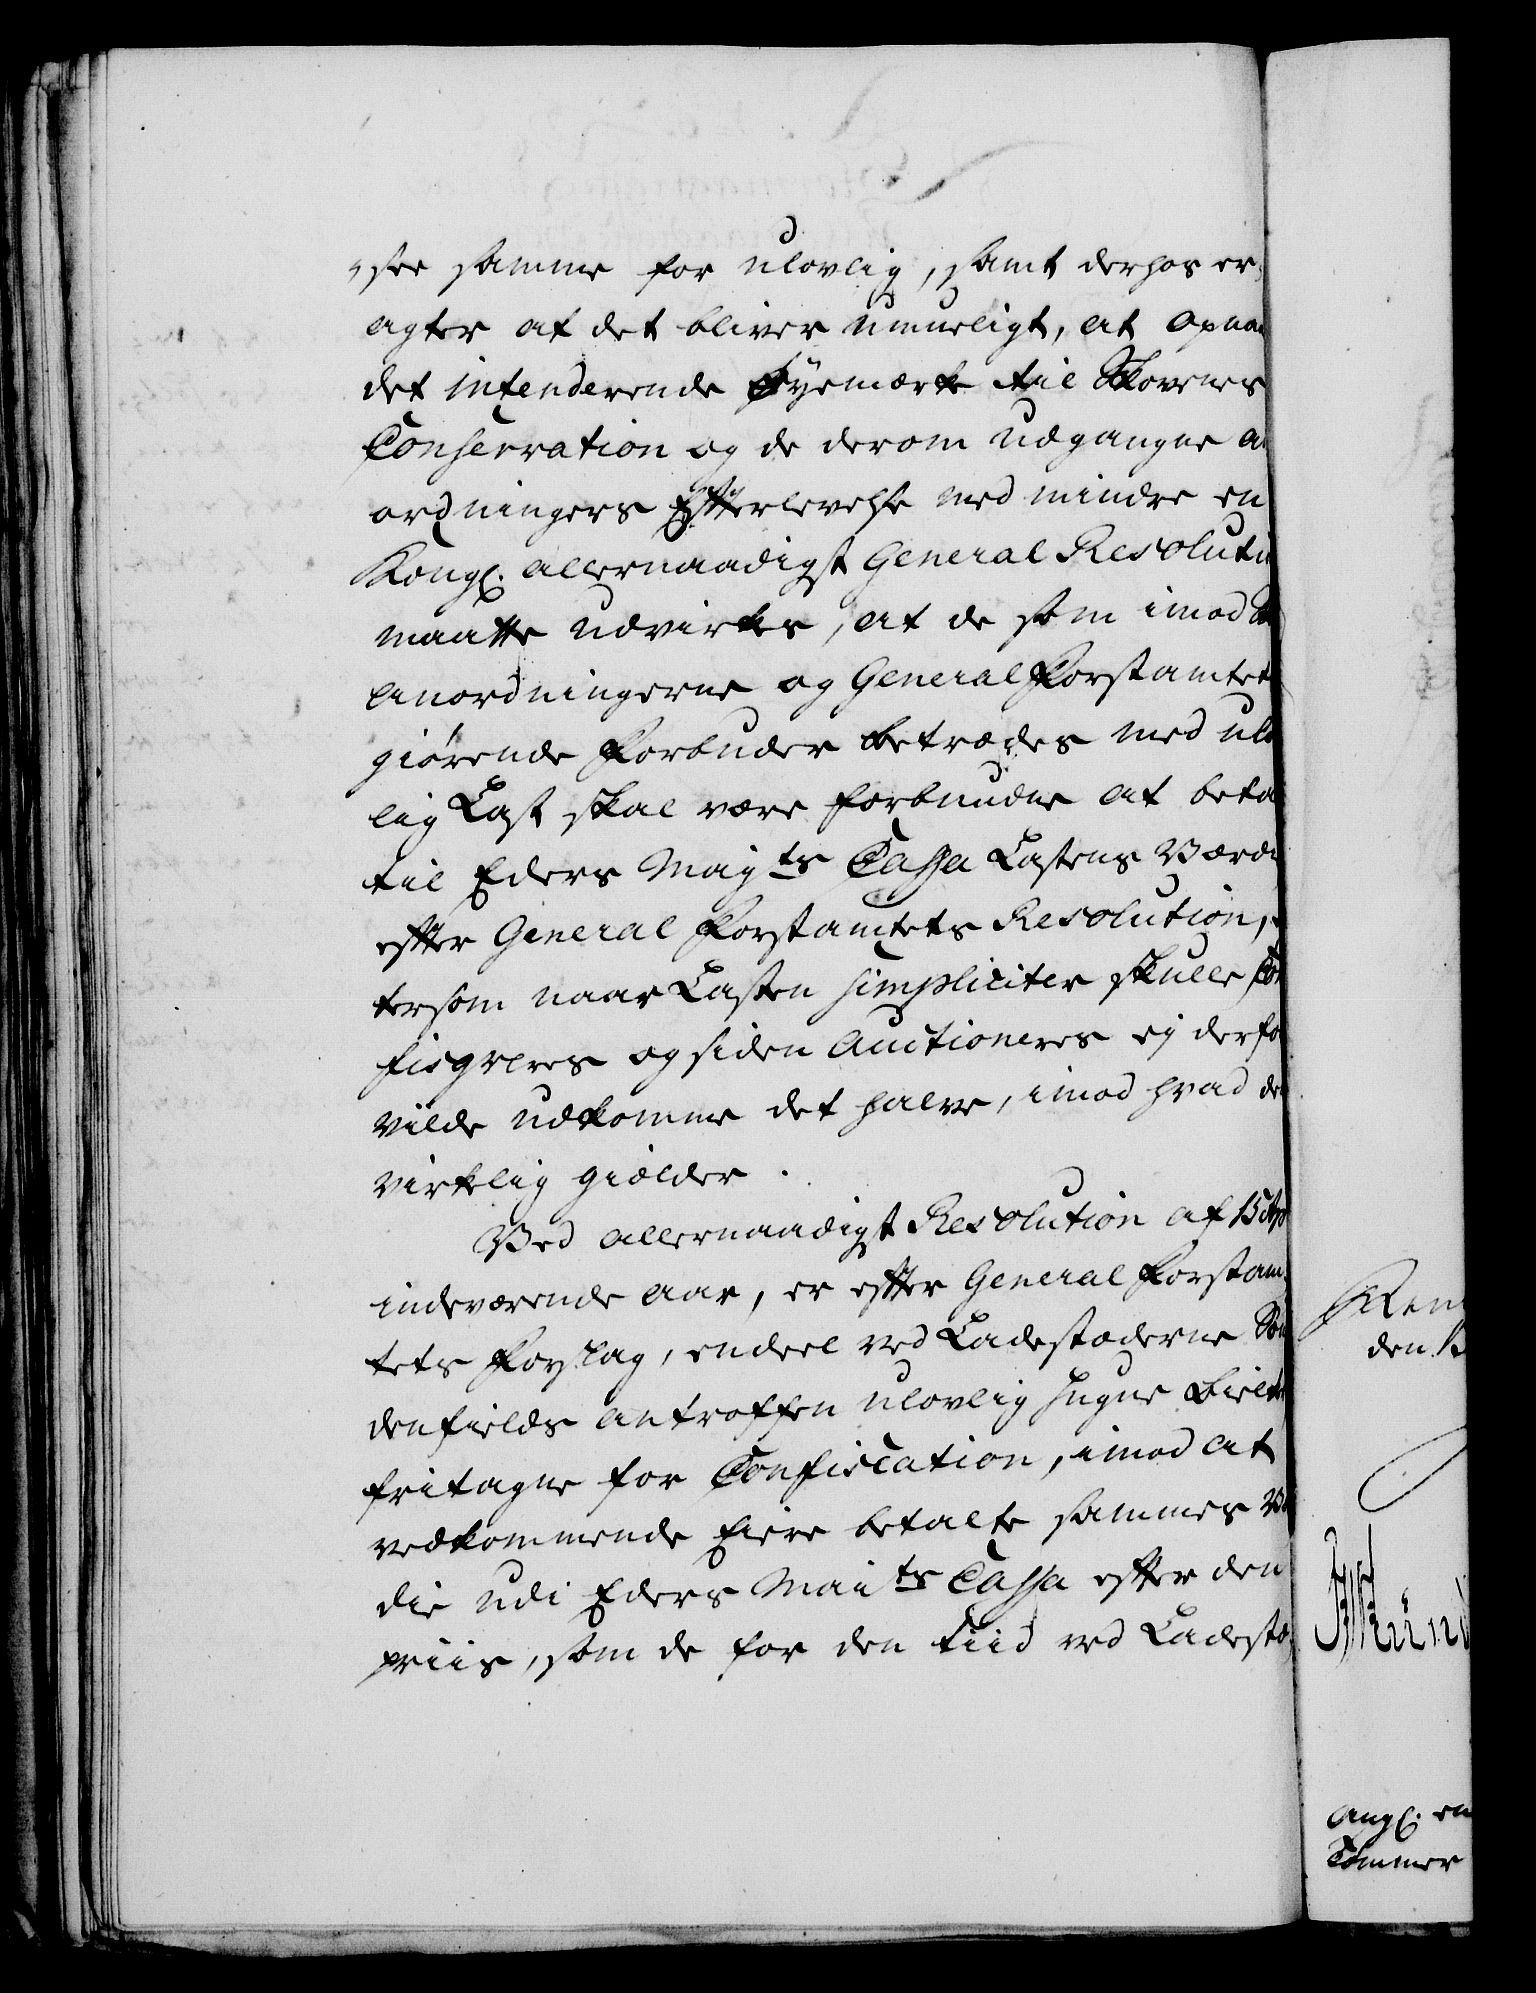 see samme for ulovlig, samt derhos er-
agter at det bliver umueligt, at opnaa
det intenderende Øyemærke til Skovenes
Conservation og de derom udgangne a
ordningers Efterlevelse med mindre en
Kongl. allernaadigst General Resoluti
maatte udvirkes, at de som imod
anordningerne og General Forstamtet
giörende Forbuder betrædes med ulo
lig Last skal være forbundne at beta
til Eders Mayts Cassa Lastens Værdi
efter General Forstamtets Resolution,
tersom naar Lasten simpliciter skulle Con
fisqveres og siden Auctioneres ej derfo
vilde udkomme det halve, imod hvad de
virkelig giælder.
Ved allernaadigst Resolution af 13 Ap
indeværende Aar, er efter General Forstam-
tets Forslag, endeel ved Ladestæderne Sön
denfields antroffen ulovlig hugne Bielk
fritagne for Confiscation, imod at
vedkommende Eiere betalte sammes Vær
die udi Eders Maits Cassa efter den
priis, som de for den Tiid ved Ladestæ-
Ren
den 1
Angl. en
Tömmer